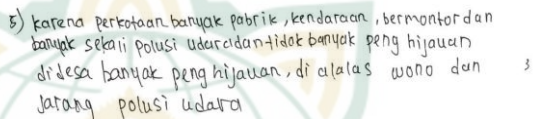 5) karena perkotaan banyak pabrik, kendaraan, bermontor dan
banyak sekali polusi udara dan tidak banyak peng hijauan
didesa banyak peng hijauan, di alalas wono dan 3
Jarang polusi udara